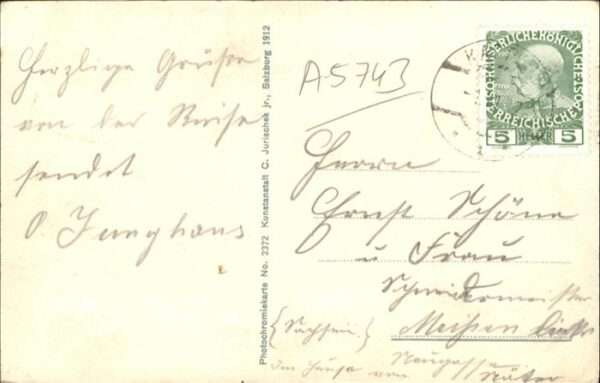 Herzlige Grüsse
von der Reise
sendet
O. Junghans
Photochromiekarte No. 2372 Kunstanstalt C. Jurischek jr., Salzburg 1912
A5743
KAISERLICHE KÖNIGLICHE
ÖSTERREICHISCHE
5 HELLER 5
Herrn
Ernst Schöne
u Frau
Schneidermeister
{Sachsen.} Meißen
Im Hause von